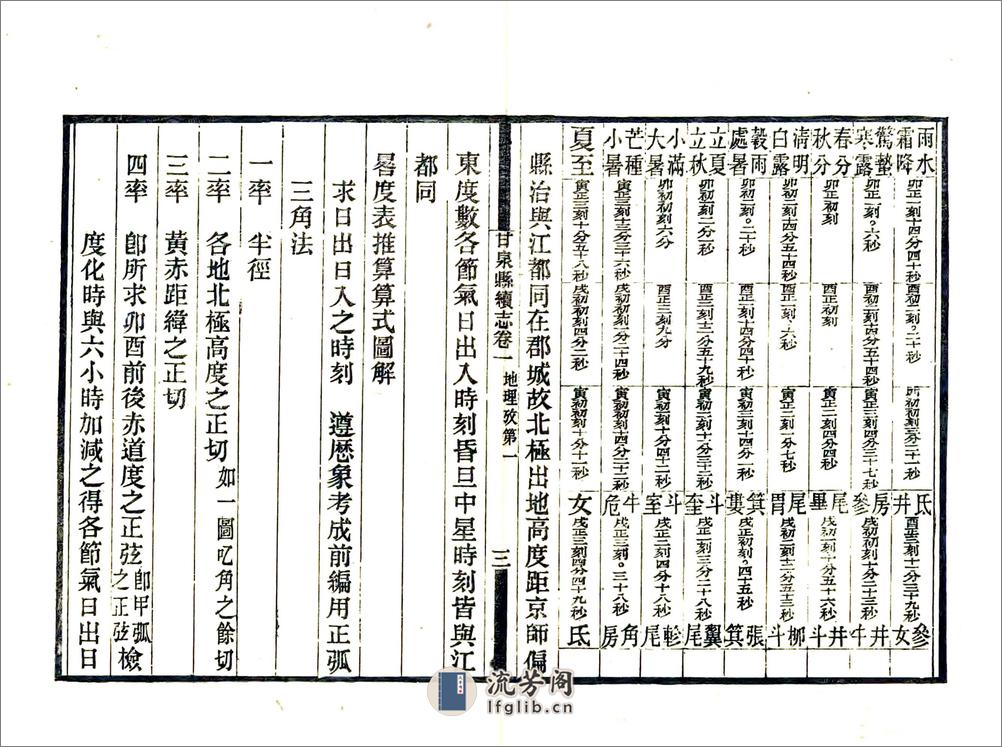 雨水 霜降 卯正一刻十四分五十四秒 酉初二刻〇二十秒 卯初初刻三分二十一秒 氐 井 酉正三刻十一分三十九秒 參 女
驚蟄 寒露 卯正一刻〇六秒 酉初三刻十四分五十四秒 寅正三刻四分三十七秒 房 參 戌初初刻十分二十三秒 井 牛
春分 秋分 卯正初刻 酉正初刻 寅正二刻四分四秒 尾 畢 戌初一刻十分五十六秒 井 斗
淸明 白露 卯初二刻十四分五十四秒 酉正一刻〇六秒 寅正二刻一分七秒 尾 胃 戌初二刻十三分五十三秒 柳 斗
穀雨 處暑 卯初二刻〇二十秒 酉正一刻十四分四十秒 寅初三刻十四分十五秒 箕 婁 戌正初刻〇四十五秒 張 箕
立夏 立秋 卯初初刻二分一秒 酉正二刻十二分五十九秒 寅初二刻十一分三十二秒 斗 奎 戌正一刻三分二十八秒 翼 尾
小滿 大暑 卯初初刻六分 酉正三刻九分 寅初一刻十分四十二秒 斗 室 戌正二刻四分十八秒 軫 尾
芒種 小暑 寅正三刻十三分三十六秒 戌初初刻一分二十四秒 寅初初刻十四分二十二秒 牛 危 戌正三刻〇三十八秒 角 房
夏至 寅正三刻十分五十八秒 戌初初刻四分二秒 寅初初刻十分十一秒 女 戌正三刻四分四十九秒 氐
縣治與江都同在郡城故北極出地高度距京師偏
甘泉縣續志卷一 地理攷第一 三
東度數各節氣日出入時刻昏旦中星時刻皆與江
都同
晷度表推算算式圖解
求日出日入之時刻 遵歷象考成前編用正弧
三角法
一率 半徑
二率 各地北極高度之正切 如一圖叱角之餘切
三率 黃赤距緯之正切
四率 卽所求卯酉前後赤道度之正弦 卽甲弧之正弦 檢
度化時與六小時加減之得各節氣日出日
流芳阁
lfglib.cn